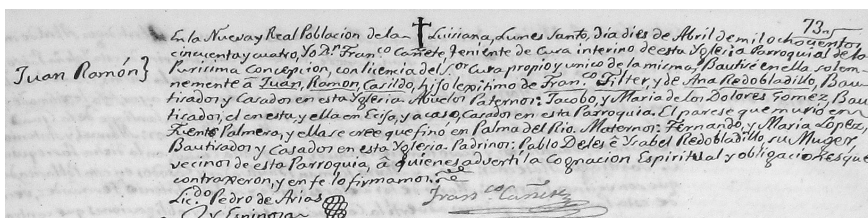 73.
En la Nueva y Real Poblacion de la Luisiana, Lunes Santo, dia dies de Abril de mil ochocentos
cincuenta y cuatro, Yo Dn. Franco. Cañete, Teniente de Cura interino de esta Yglesia Parroquial de la
Juan Ramón} Purisima Concepcion, con licencia del Sor. Cura propio y unico de la misma, Bautisé en ella solem
nemente á Juan, Ramon, Casildo, hijo legitimo de Franco. Filter, y de Ana Redobladillo, Bau-
tisados y Casados en esta Yglesia. Abuelos Paternos: Jacobo, y Maria de los Dolores Gomez, Bau
tisados, el en esta, y ella en Ecija, y acaso, Casados en esta Parroquia. El parese que murió en
Fuente Palmera, y ella se cree que finó en Palma del Rio. Maternos: Fernando, y Maria Lopez,
Bautisados y Casados en esta Yglesia. Padrinos: Pablo Deles é Ysabel Redobladillo, su Muger,
vecinos de esta Parroquia, á quienes advertí la Cognacion Espiritual y obligaciones que
contraxeron, y en fe lo firmamos.
Licdo. Pedro de Arias Franco. Cañete
y Espinosa